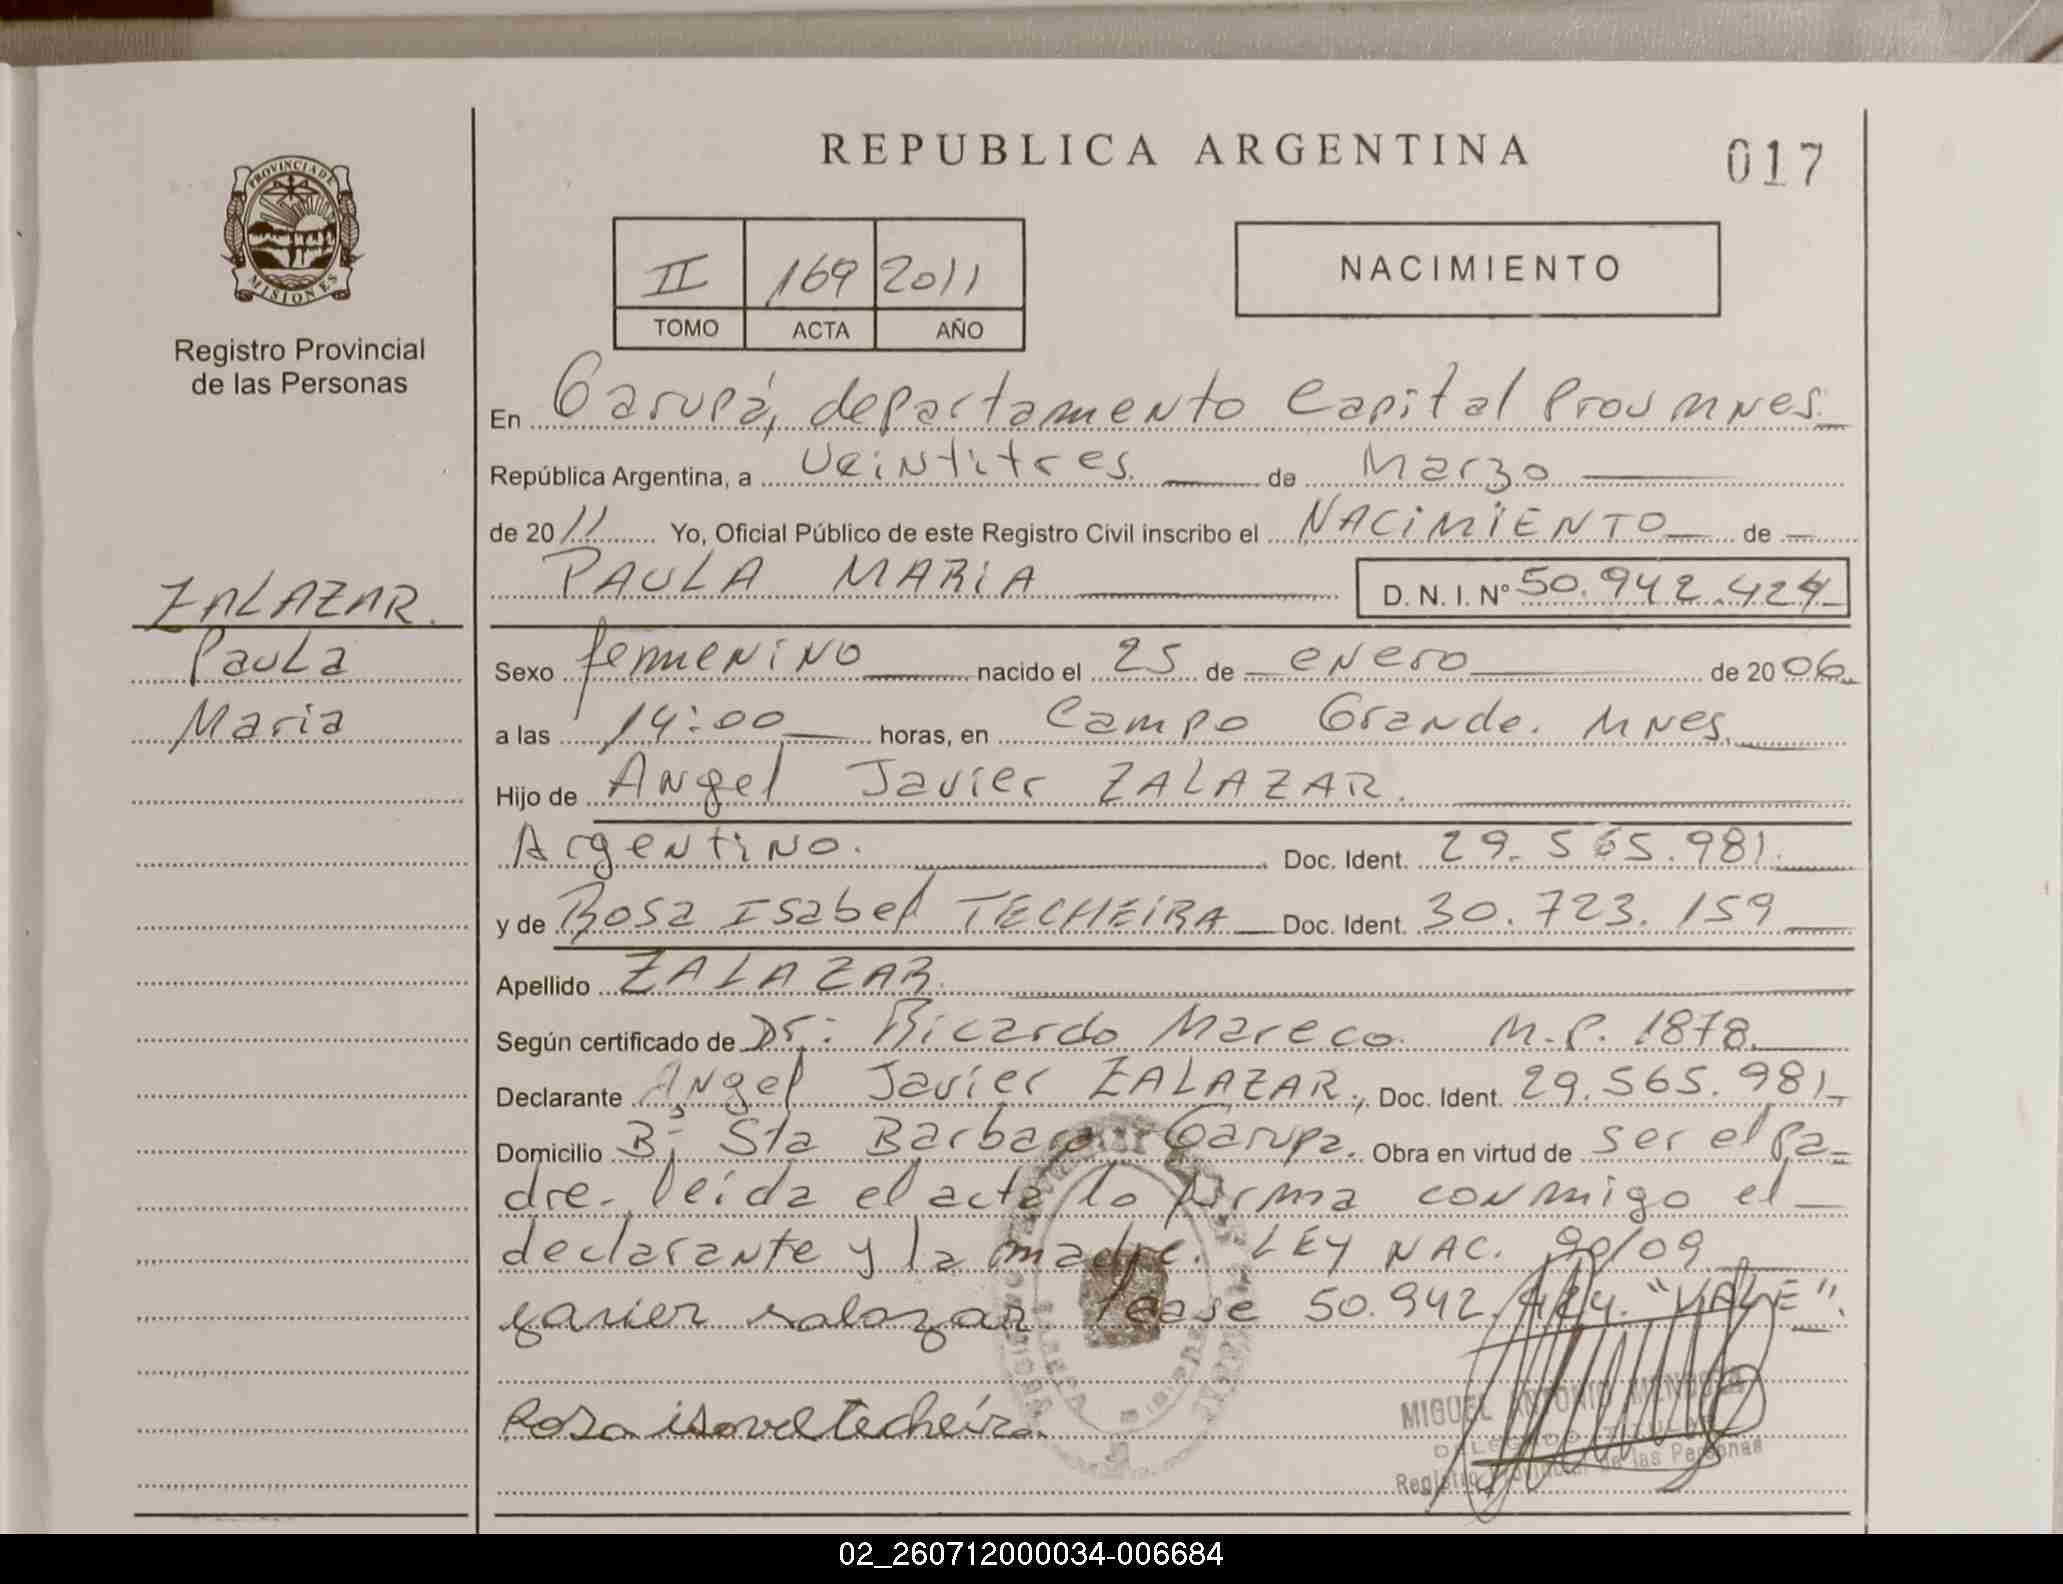 REPUBLICA ARGENTINA
017
PROVINCIA DE
MISIONES
Registro Provincial
de las Personas
II 169 2011
TOMO ACTA AÑO
NACIMIENTO
En Garupá, departamento Capital Prov Mnes.
República Argentina, a veintitres de Marzo
de 2011 Yo, Oficial Público de este Registro Civil inscribo el NACIMIENTO de
PAULA MARIA D. N. I. Nº 50.942.424
ZALAZAR.
Paula
Maria
Sexo femenino nacido el 25 de enero de 2006
a las 14:00 horas, en Campo Grande. Mnes.
Hijo de Angel Javier ZALAZAR.
Argentino. Doc. Ident. 29.565.981.
y de Rosa Isabel TECHEIRA Doc. Ident. 30.723.159
Apellido ZALAZAR.
Según certificado de Dr: Ricardo Mareco M.P. 1878.
Declarante Angel Javier ZALAZAR, Doc. Ident. 29.565.981
Domicilio Bº Sta Barbara Garupa. Obra en virtud de ser el Pa-
dre. leida el acta lo firma conmigo el
declarante y la madre. LEY NAC. 90/09
salazar lease 50.942.424. "VALE".
Rosa isavel techeira
MIGUEL ANTONIO
DELEGADO TITULAR
Registro Provincial de las Personas
02_260712000034-006684